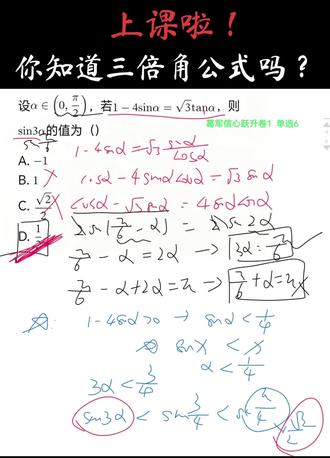 上课啦！
你知道三倍角公式吗？
设α∈(0, π/2)，若1−4sinα=√3tanα，则
葛军信心跃升卷1 单选6
sin3α的值为（）
A. −1
B. 1
C. √2/2
D. 1/2
1-4sinα=√3 sinα/cosα
cosα-4sinαcosα=√3sinα
cosα-√3sinα=4sinαcosα
2sin(π/6-α)=2sin2α
π/6-α=2α → 3α=π/6
π/6-α+2α=π → π/6+α=π
1-4sinα>0 → sinα<1/4
sinx<x
α<1/4
3α<3/4
sin3α<sin3/4<sinπ/4<√2/2